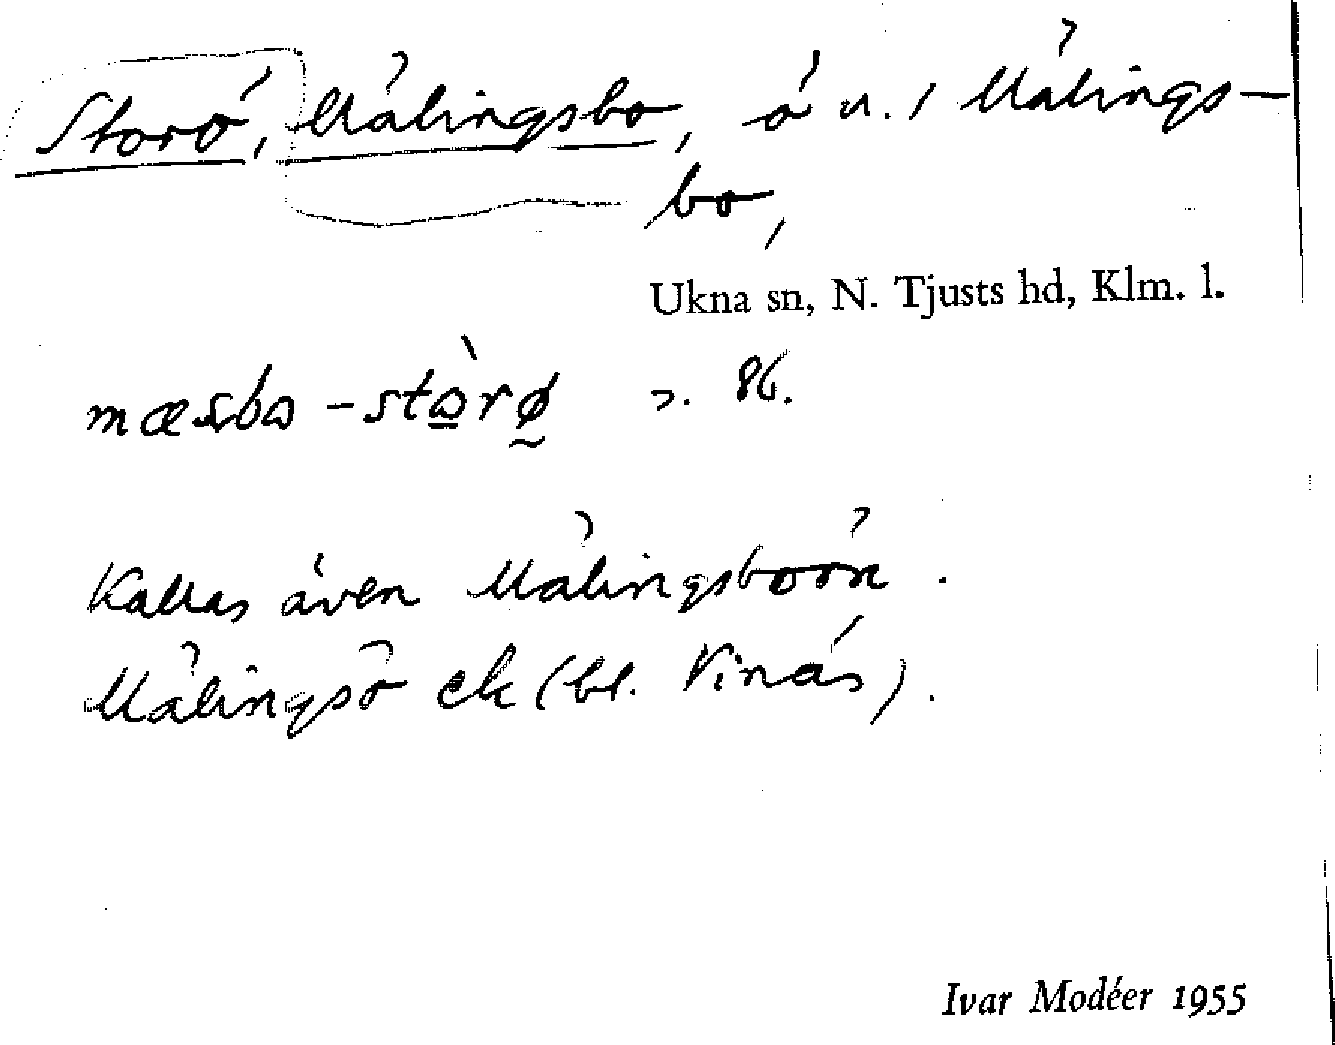 Storö, Målingsbo, ö u. / Målings-
bo,
Ukna sn, N. Tjusts hd, Klm. l.
86.
Kallas även Målingsboön.
Målingsö ek (bl. Vinäs).
Ivar Modéer 1955